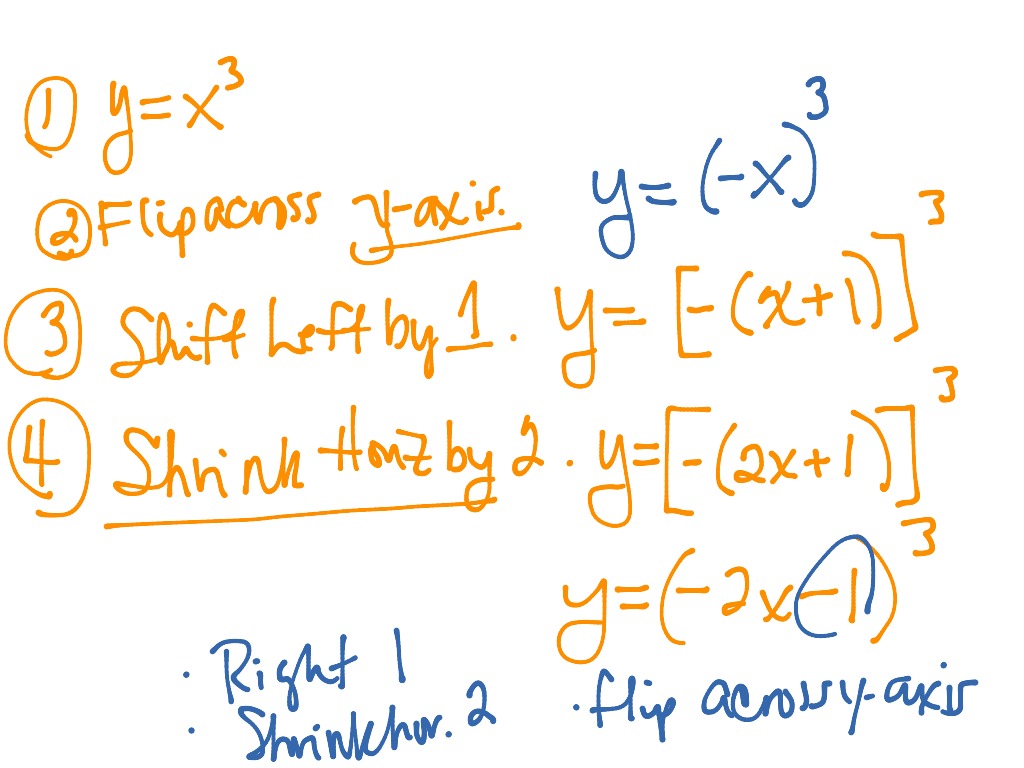 ① y=x³
y=(-x)³
② Flip across y-axis.
③ Shift Left by 1. y=[-(x+1)]³
④ Shrink Horz by 2. y=[-(2x+1)]³
y=(-2x-1)³
· Right 1
· Shrink hor. 2
· flip across y-axis